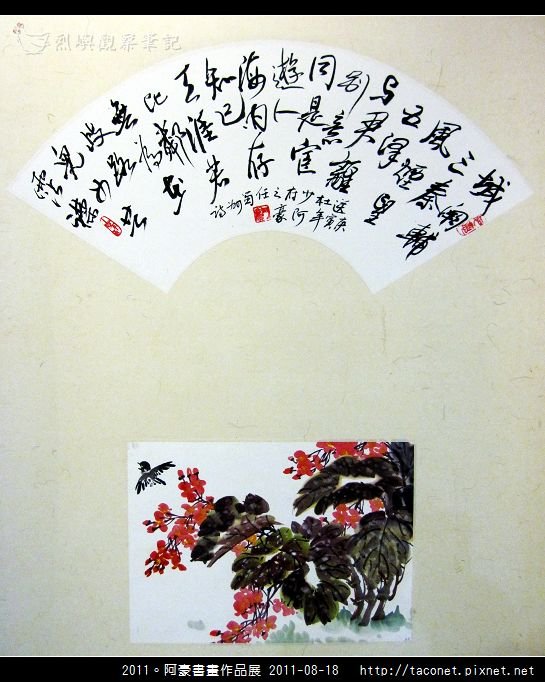 烈嶼觀察筆記
城闕輔
三秦
風煙望
五津
与君離
別意
同是宦
遊人
海内存
知己
天涯若
比鄰
無為在
歧路
兒女共
霑巾
送杜少府之任蜀州詩
庚寅年阿豪
2011。阿豪書畫作品展 2011-08-18 http://taconet.pixnet.net